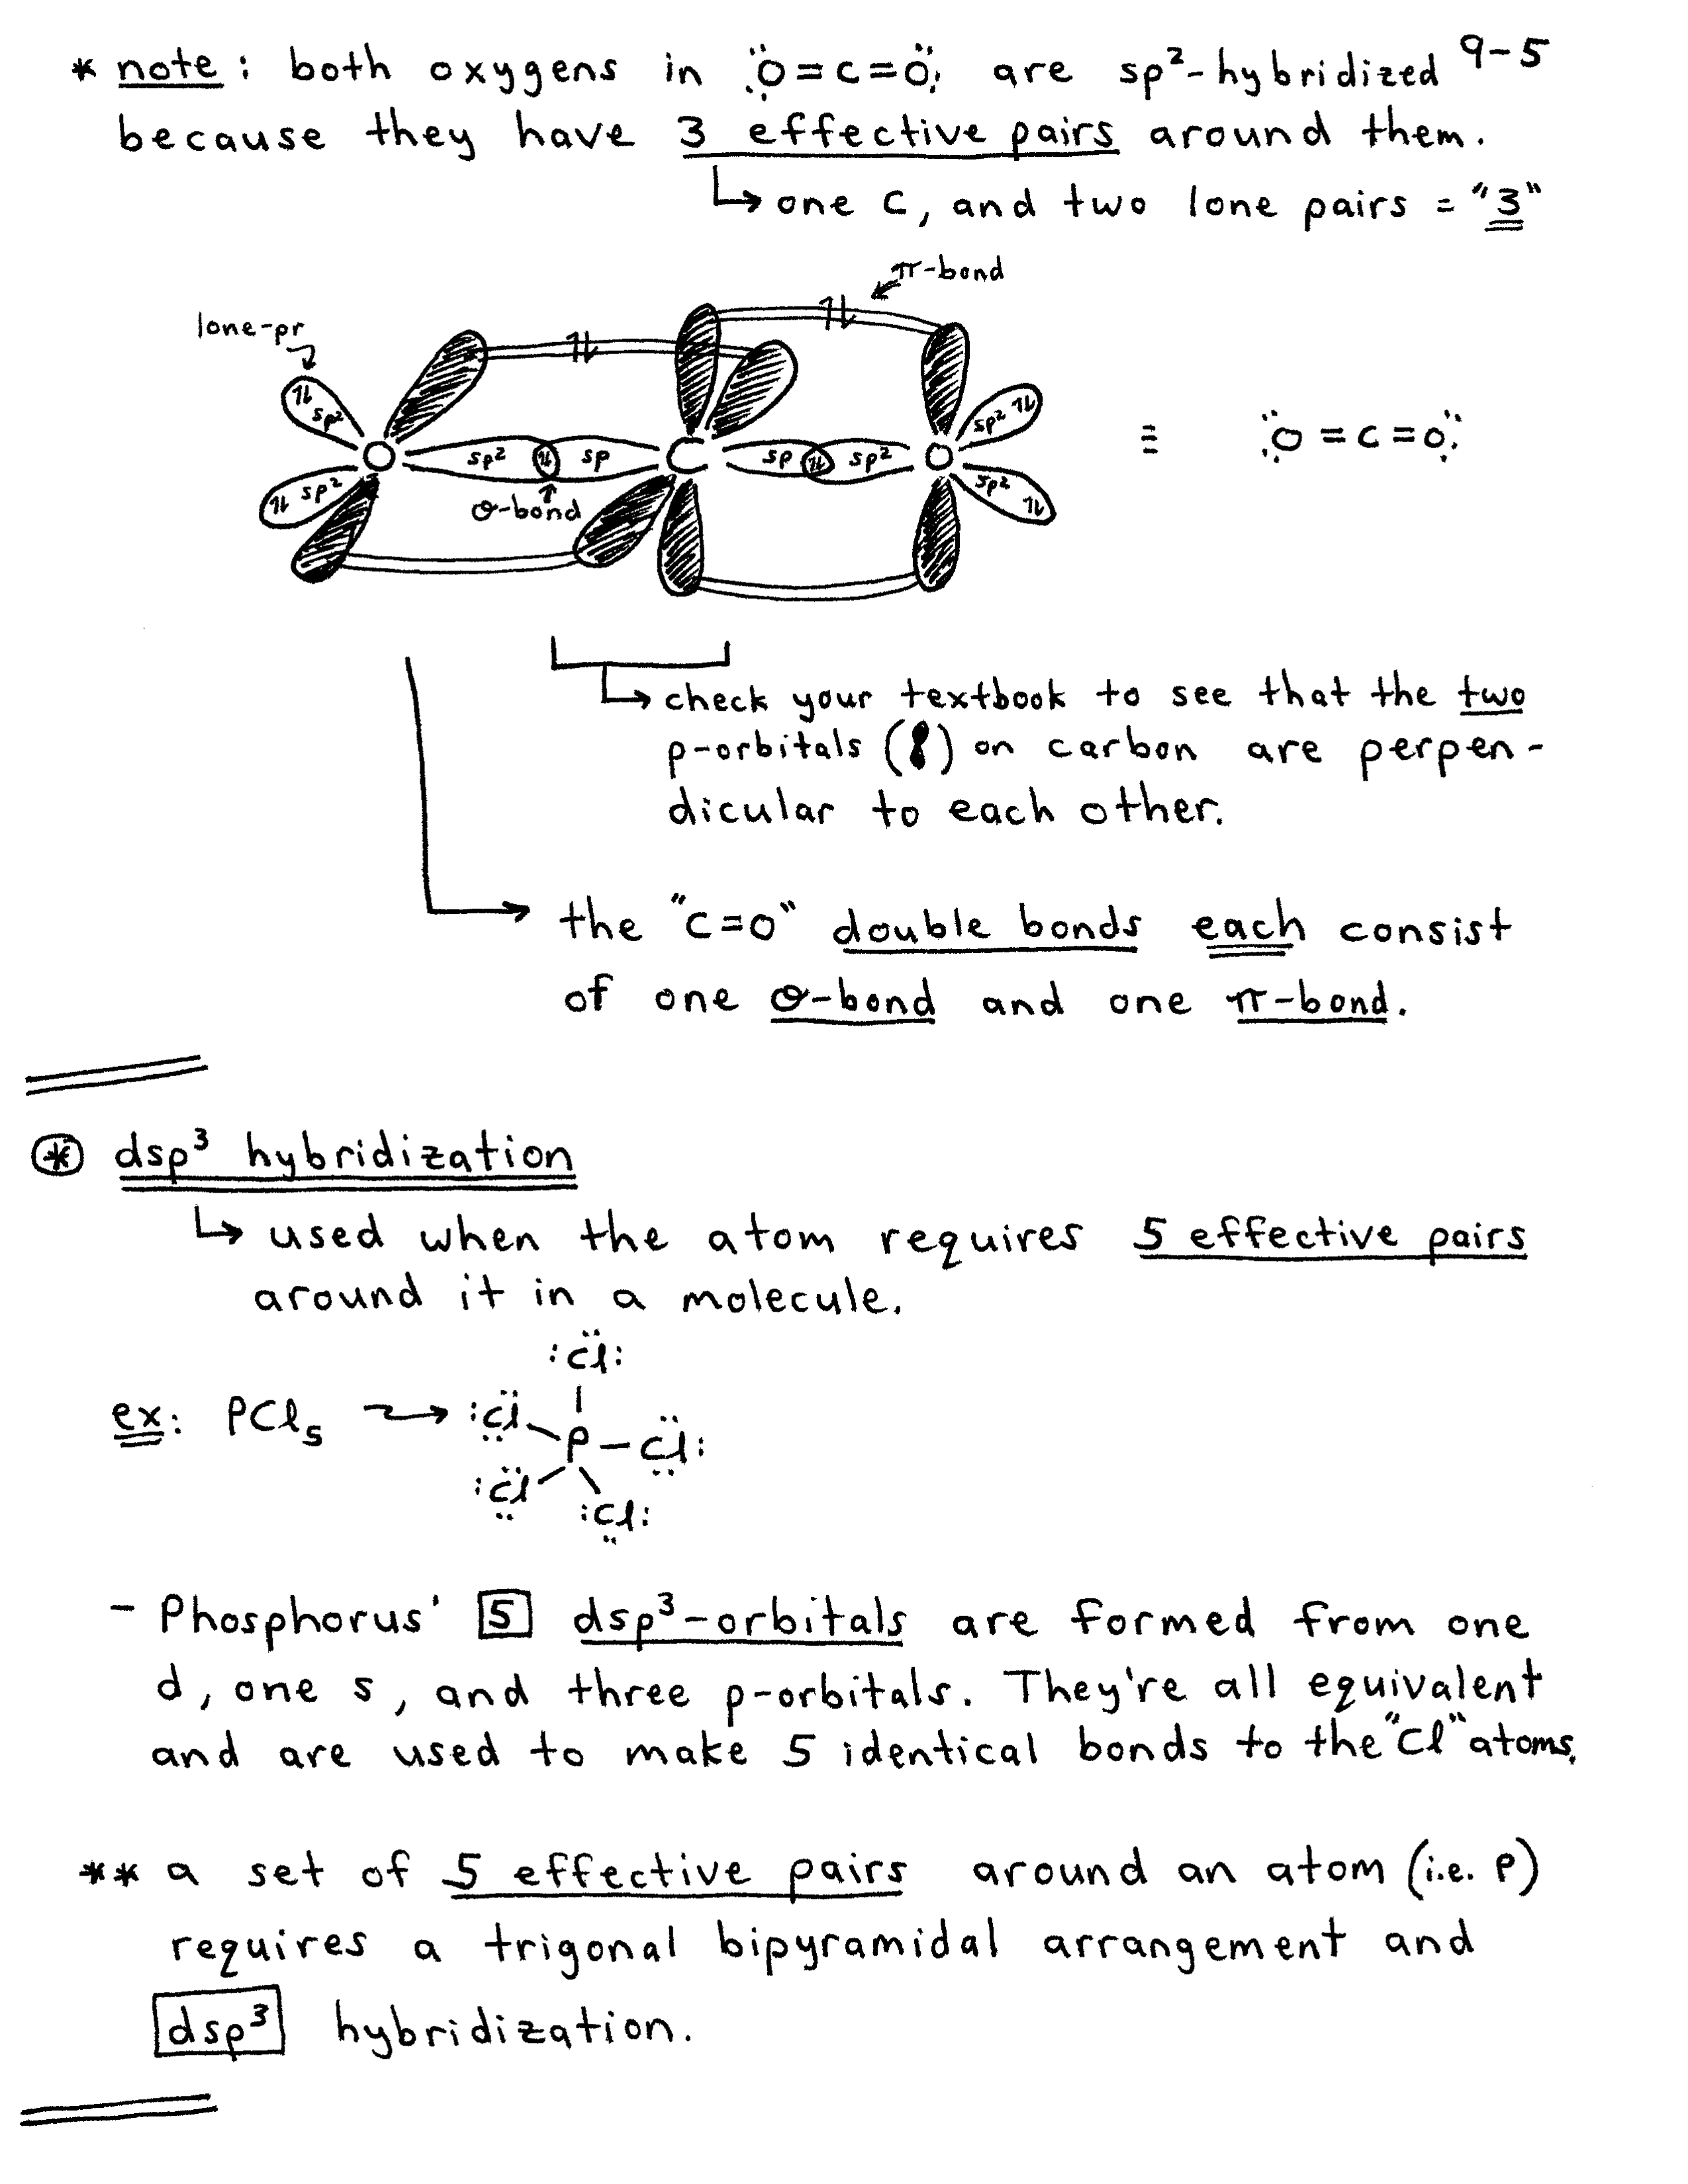 * note: both oxygens in :Ö=C=Ö: are sp²-hybridized 9-5
because they have 3 effective pairs around them.
↳ one C, and two lone pairs = "3"
π-bond
lone-pr
⇅ ⇅
⇅ sp² sp² ⇅
O sp² ⇅ sp C sp ⇅ sp² O ≡ :Ö=C=Ö:
⇅ sp² sp² ⇅
σ-bond
↳ check your textbook to see that the two
p-orbitals ( ) on carbon are perpen-
dicular to each other.
→ the "C=O" double bonds each consist
of one σ-bond and one π-bond.
⊛ dsp³ hybridization
↳ used when the atom requires 5 effective pairs
around it in a molecule.
:C̈l:
ex: PCl₅ → :C̈l
P-C̈l:
:C̈l
:Cl:
- Phosphorus' 5 dsp³-orbitals are formed from one
d, one s, and three p-orbitals. They're all equivalent
and are used to make 5 identical bonds to the "Cl" atoms.
** a set of 5 effective pairs around an atom (i.e. P)
requires a trigonal bipyramidal arrangement and
dsp³ hybridization.